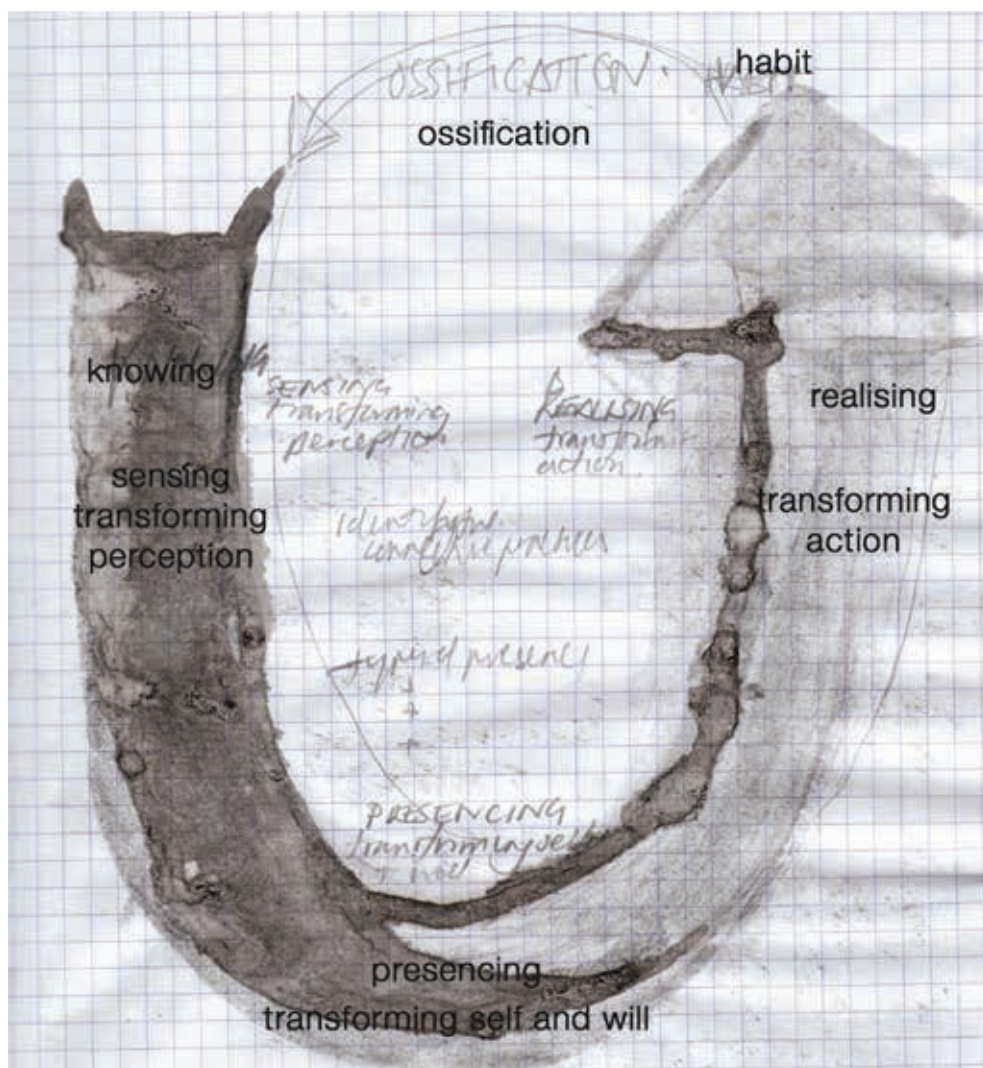 habit
OSSIFICATION. HABIT
ossification
knowing
SENSING
transforming
perception
REALISING
transform
action
realising
sensing
transforming
perception
transforming
action
connective practices
typical presence
PRESENCING
transforming self
presencing
transforming self and will